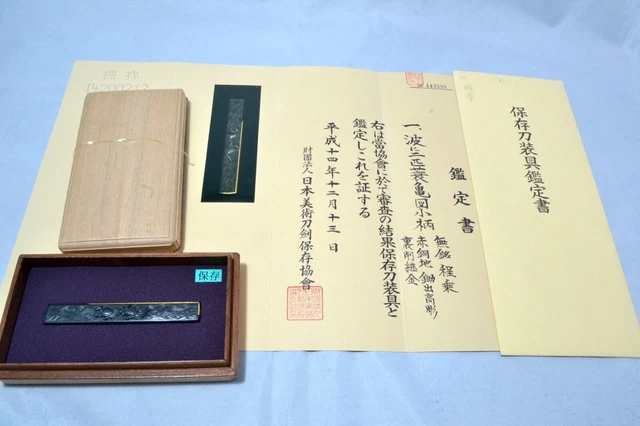 保存刀装具鑑定書
鑑定書
一、波に三匹蓑亀図小柄
無銘 程乗
赤銅地 鋤出高彫
裏削継金
右は當協會に於て審査の結果保存刀装具と
鑑定しこれを証する
平成十四年十二月十三日
財團法人日本美術刀劍保存協會
保存